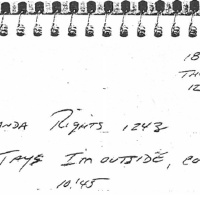 18
TH
12
ANDA Rights 1243
TAYS I'm OUTSIDE, CO
10:45